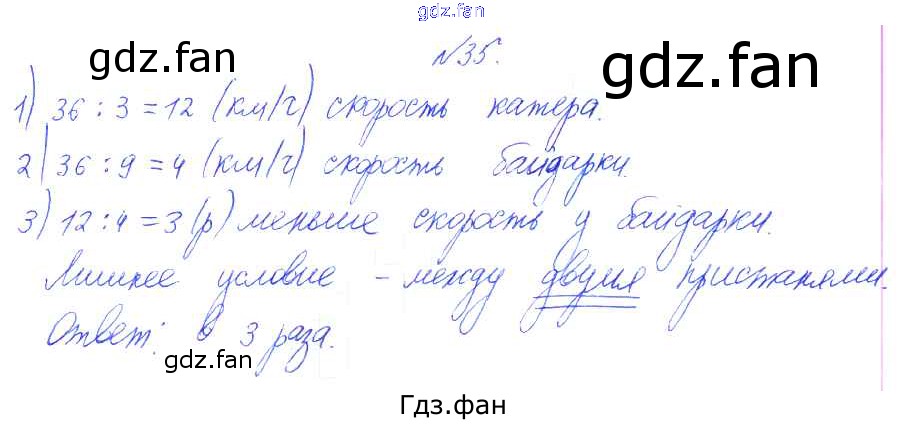 gdz.fan
gdz.fan
№35.
gdz.fan
1) 36 : 3 = 12 (км/ч) скорость катера.
2) 36 : 9 = 4 (км/ч) скорость байдарки.
3) 12 : 4 = 3 (р) меньше скорость у байдарки.
Лишнее условие – между двумя пристанями.
Ответ: в 3 раза.
gdz.fan
Гдз.фан